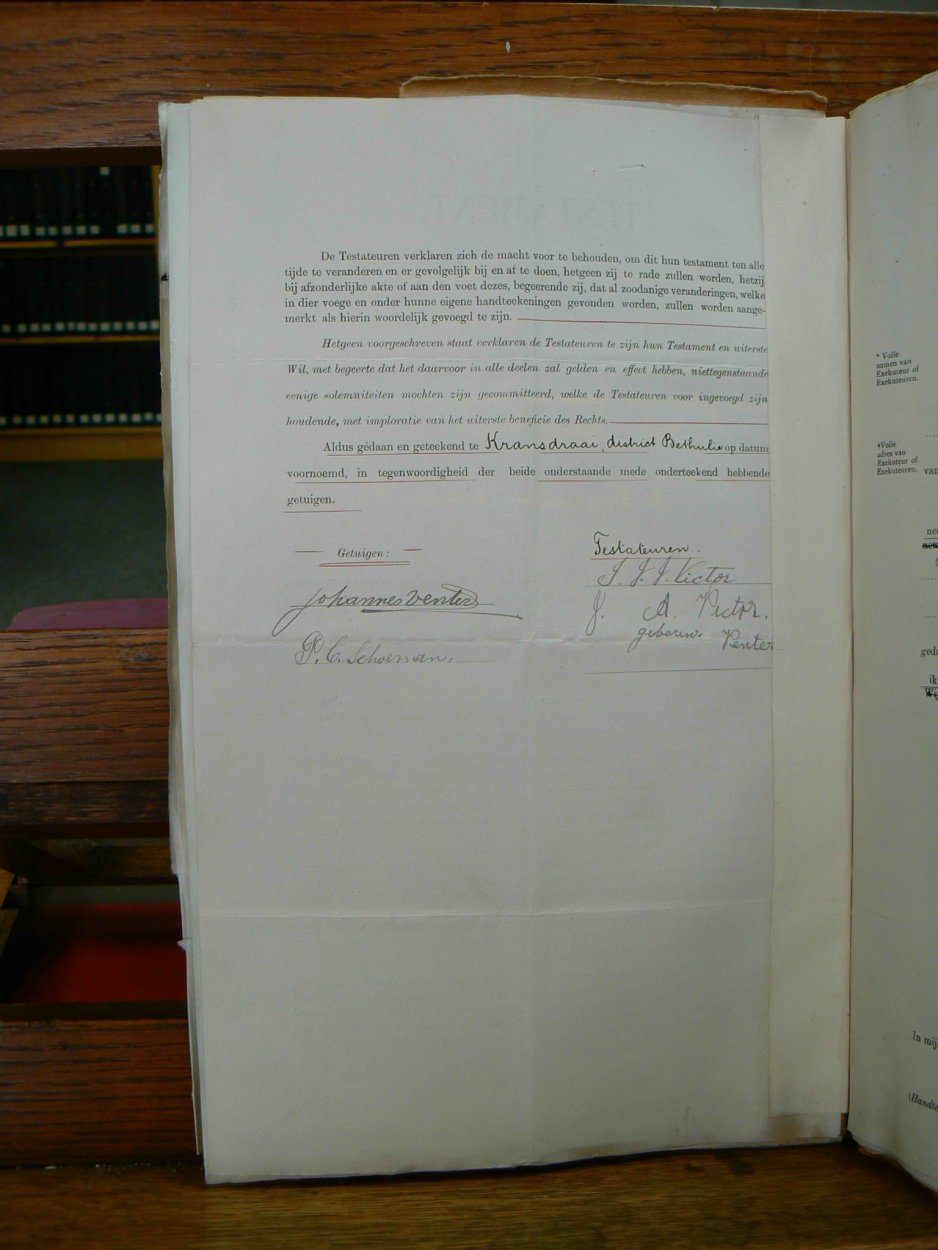 De Testateuren verklaren zich de macht voor te behouden, om dit hun testament ten alle
tijde te veranderen en er gevolgelijk bij en af te doen, hetgeen zij te rade zullen worden, hetzij
bij afzonderlijke akte of aan den voet dezes, begeerende zij, dat al zoodanige veranderingen, welke
in dier voege en onder hunne eigene handteekeningen gevonden worden, zullen worden aange-
merkt als hierin woordelijk gevoegd te zijn.
Hetgeen voorgeschreven staat verklaren de Testateuren te zijn hun Testament en uiterste
Wil, met begeerte dat het daarvoor in alle deelen zal gelden en effect hebben, niettegenstaande
eenige solemniteiten mochten zijn gecommitteerd, welke de Testateuren voor ingevoegd zijn
houdende, met imploratie van het uiterste beneficie des Rechts.
Aldus gedaan en geteekend te Kransdraai, district Bethulie op datum
voornoemd, in tegenwoordigheid der beide onderstaande mede onderteekend hebbende
getuigen.
Getuigen:
Johannes Venter
P. C. Schoeman.
Testateuren.
J. J. J. Victor
J. A. Victor.
gebouw. Venter
* Volle
namen van
Exekuteur of
Exekuteuren.
†Volle
adres van
Exekuteur of
Exekuteuren.
van
ik
In mij